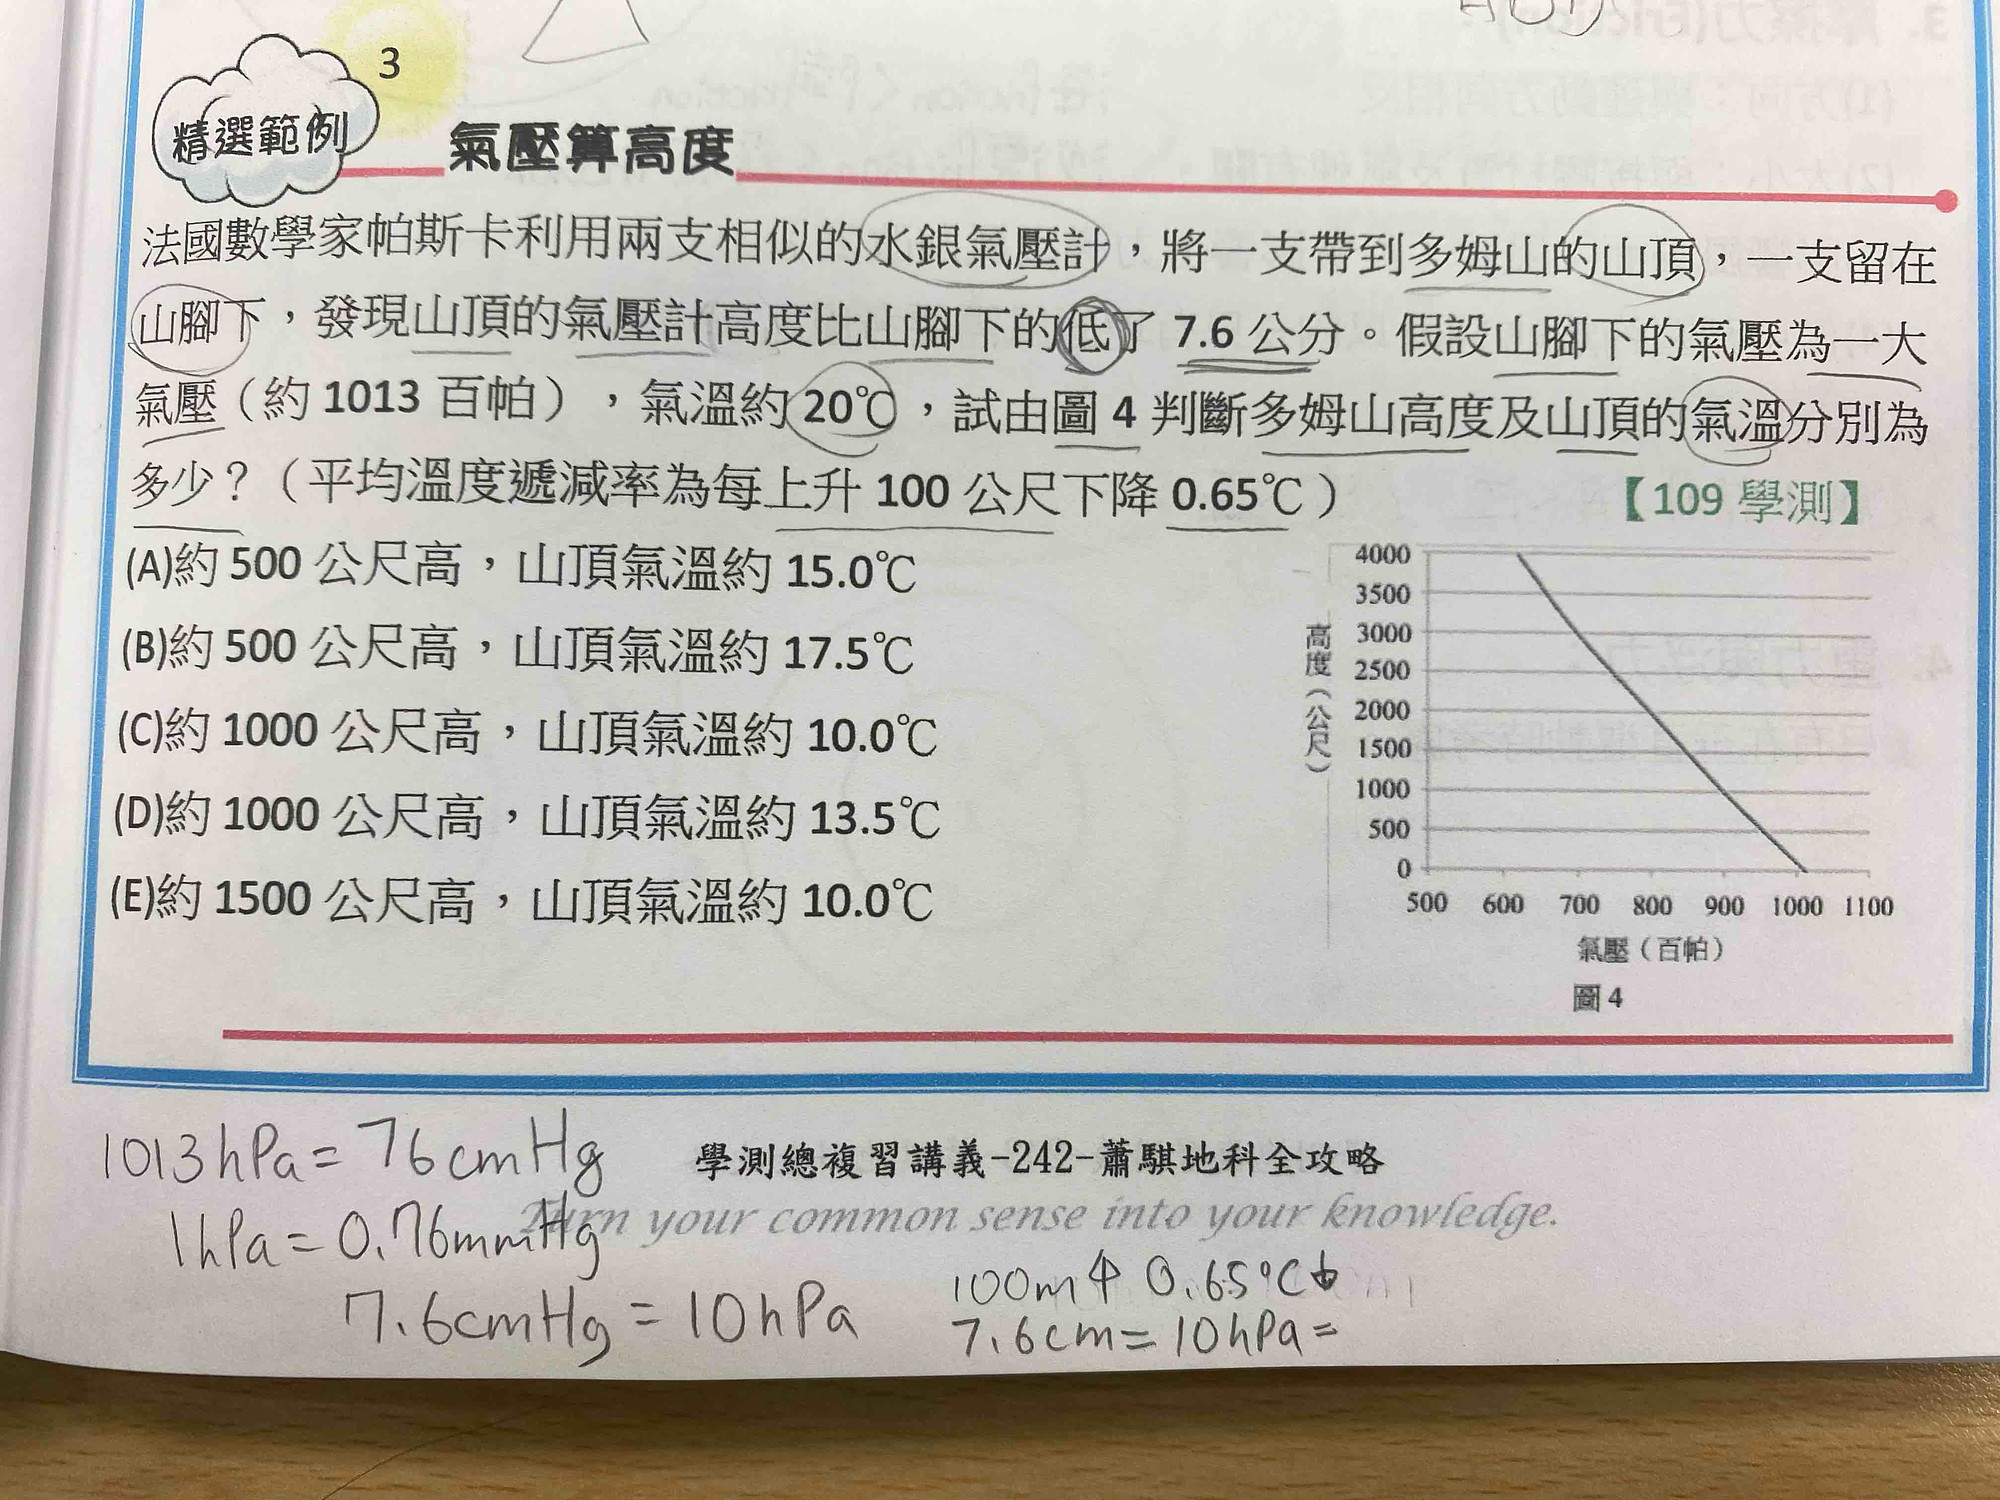 3
精選範例
氣壓算高度
法國數學家帕斯卡利用兩支相似的水銀氣壓計，將一支帶到多姆山的山頂，一支留在
山腳下，發現山頂的氣壓計高度比山腳下的低了 7.6 公分。假設山腳下的氣壓為一大
氣壓（約 1013 百帕），氣溫約 20℃，試由圖 4 判斷多姆山高度及山頂的氣溫分別為
多少？（平均溫度遞減率為每上升 100 公尺下降 0.65℃）
【109 學測】
(A)約 500 公尺高，山頂氣溫約 15.0℃
(B)約 500 公尺高，山頂氣溫約 17.5℃
(C)約 1000 公尺高，山頂氣溫約 10.0℃
(D)約 1000 公尺高，山頂氣溫約 13.5℃
(E)約 1500 公尺高，山頂氣溫約 10.0℃
高度（公尺）
4000
3500
3000
2500
2000
1500
1000
500
0
500 600 700 800 900 1000 1100
氣壓（百帕）
圖 4
1013hPa=76cmHg
學測總複習講義-242-蕭騏地科全攻略
Turn your common sense into your knowledge.
1hPa=0.76mmHg
7.6cmHg=10hPa
100m↑ 0.65°C↓
7.6cm=10hPa=